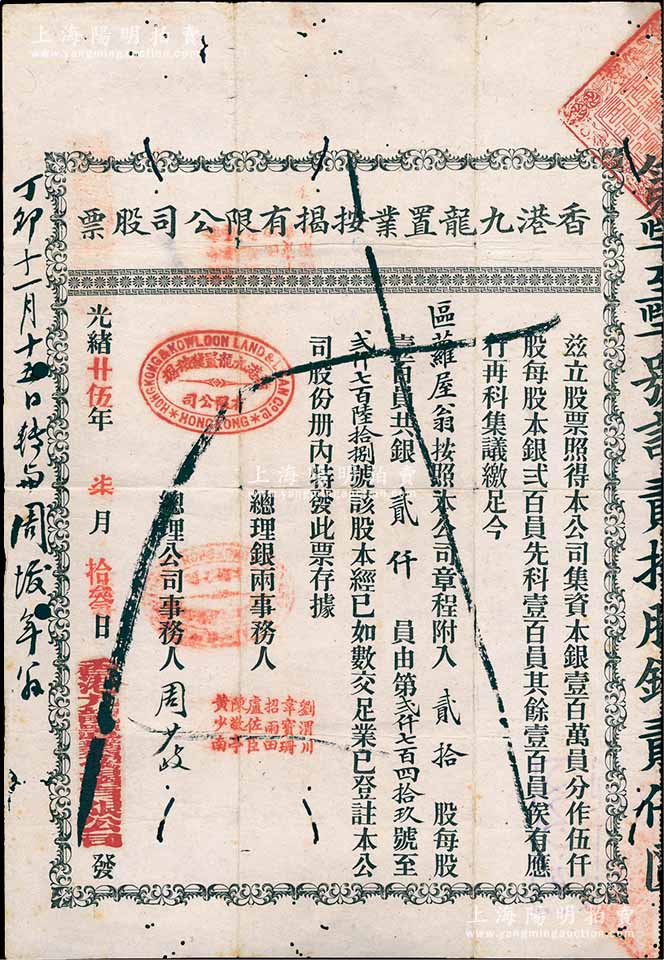 上海陽明拍賣
www.yangmingauction.com
香港九龍置業按揭有限公司股票
茲立股票照得本公司集資本銀壹百萬員分作伍仟
股每股本銀弍百員先科壹百員其餘壹百員俟有應
行再科集議繳足今
區蘿屋翁按照本公司章程附入貳拾股每股
壹百員共銀貳仟員由第弍仟七百四拾玖號至
弍仟七百陸拾捌號該股本經已如數交足業已登註本公
司股份册內特發此票存據
總理銀兩事務人
劉渭川
韋寶珊
招雨田
盧佐臣
陳啟亭
黄少南
總理公司事務人 周少岐
光緒廿伍年柒月拾叁日發
HONGKONG & KOWLOON LAND & LOAN CO LD
限公司
HONGKONG
丁卯十一月十五日轉與周埈年翁
上海陽明拍賣
www.yangmingauction.com
上海陽明拍賣
www.yangmingauction.com